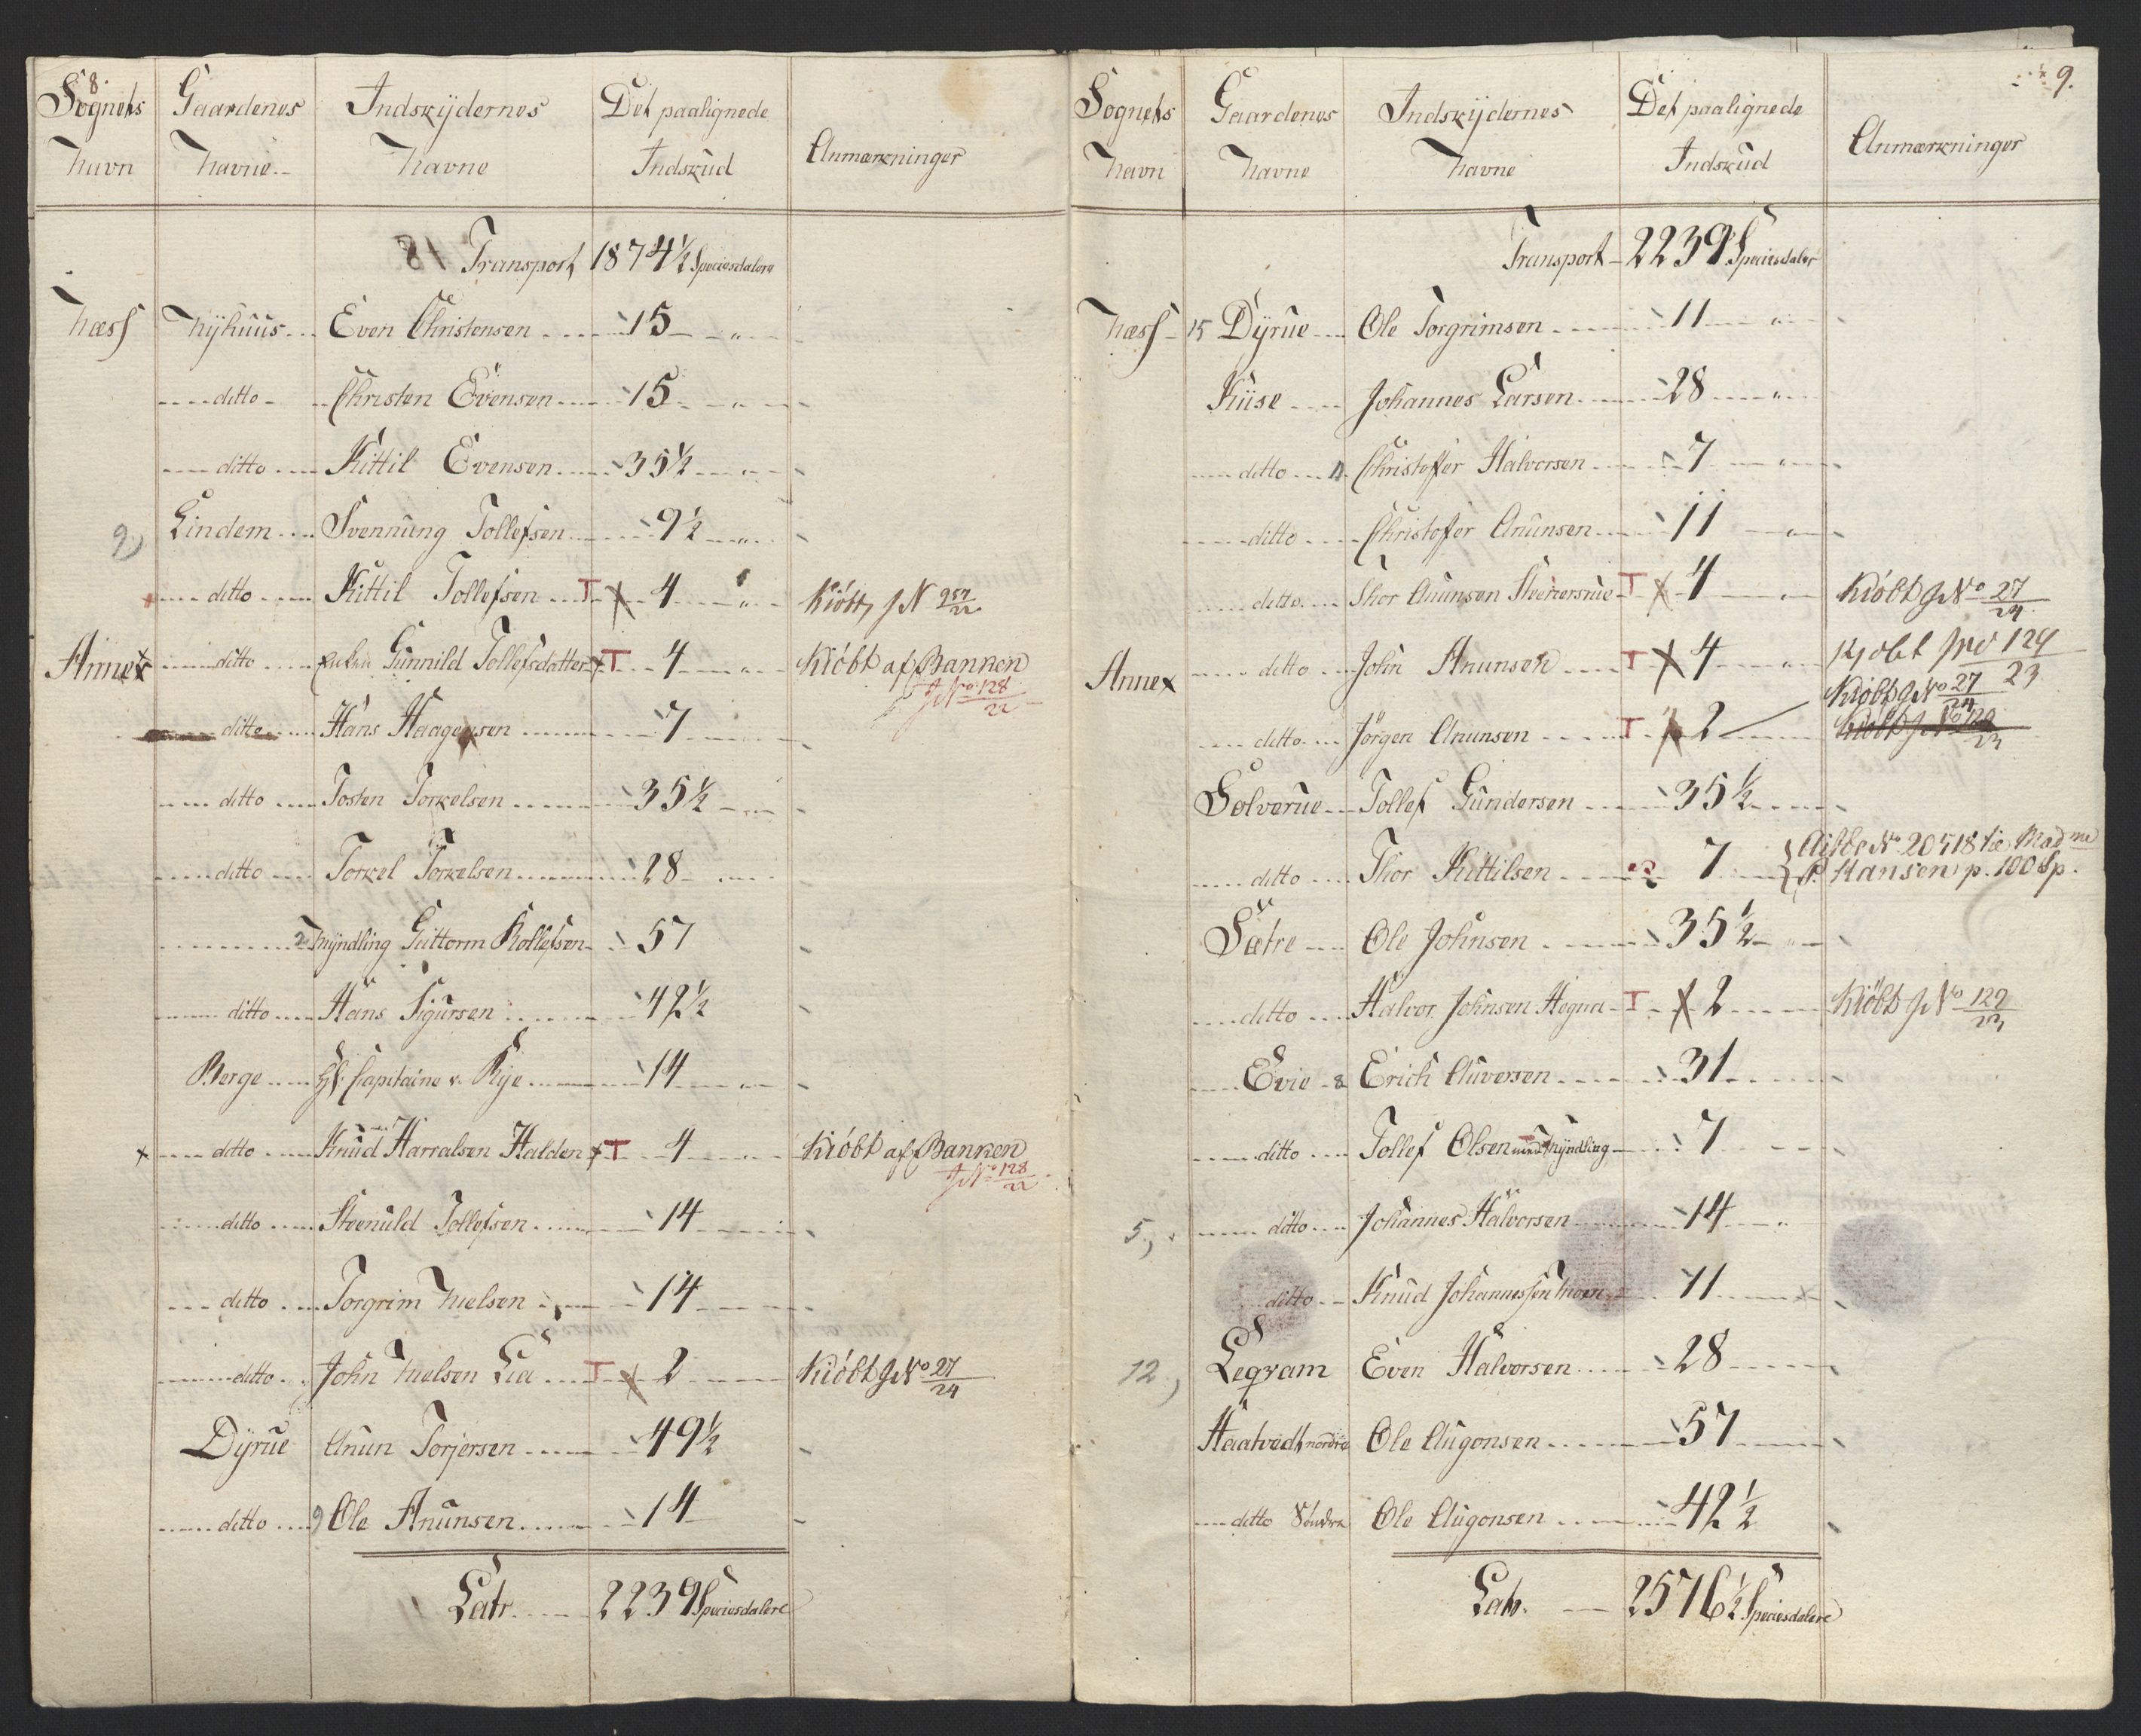 8.
Sognets Gaardenes Indskydernes Det paalignede Anmærkninger
Navn Navne Navne Indskud
Transport 1874½ Speciesdalere
Næss Nyhuus Even Christensen 15 "
ditto Christen Evensen 15 "
ditto Kittil Evensen 35½ "
9) Lindem Svennung Tollefsen 9½ "
ditto Kittil Tollefsen T x 4 " Kiöbt J N
Annex ditto Gunnild Tollefsdatter x T 4 " Kiöbt af Banken
J No 128/22
ditto Hans Haagensen 7
ditto Tosten Torkelsen 35½
ditto Torkel Torkelsen 28
Myndling Guttorm Rollefsen 57
ditto Hans Sigursen 42½
Berge Hr Capitaine v. Rye 14 "
x ditto Knud Harralsen Halden x T 4 " Kiöbt af Banken
J No 128/22
ditto Steenuld Tollefsen 14
ditto Torgrim Nielsen 14
ditto John Nielsen Lia T x 2 Kiöbt J No 27/24
Dyrue Anun Torjersen 49½
ditto 9 Ole Anunsen 14
Latr. 2239 Speciesdalere
9.
Sognets Gaardenes Indskydernes Det paalignede Anmærkninger
Navn Navne Navne Indskud
Transport 2239 Speciesdaler
Næss 15 Dyrue Ole Torgrimsen 11 "
Kiise Johannes Larsen 28 "
ditto Christoffer Halvorsen 7 "
ditto Christofer Anunsen 11 "
ditto Thor Anunsen T x 4 Kiöbt J No 27/24
Annex ditto John Anunsen T x 4 " Kjobt No 129/23
ditto Jörgen Anunsen T x 2 Kiöbt J No 27/24
Kiöbt J No 129/23
Solverue Tollef Gundersen 35½
ditto Thor Kittilsen 7 No 20518 Madme
Hansen p. 100 Sp.
Sætre Ole Johnsen 35½ "
ditto Halvor Johnsen Hogna T x 2 Kiöbt J No 129/23
Evie 8 Erich Auversen 31
ditto Tollef Olsen Myndling 7
5) ditto Johannes Halvorsen 14 "
ditto Knud Johannessen Moen 11
12) Legram Even Halvorsen 28
Haatvedt nordre Ole Augonsen 57
ditto Söndre Ole Augonsen 42½
Latr. 2576½ Speciesdalere